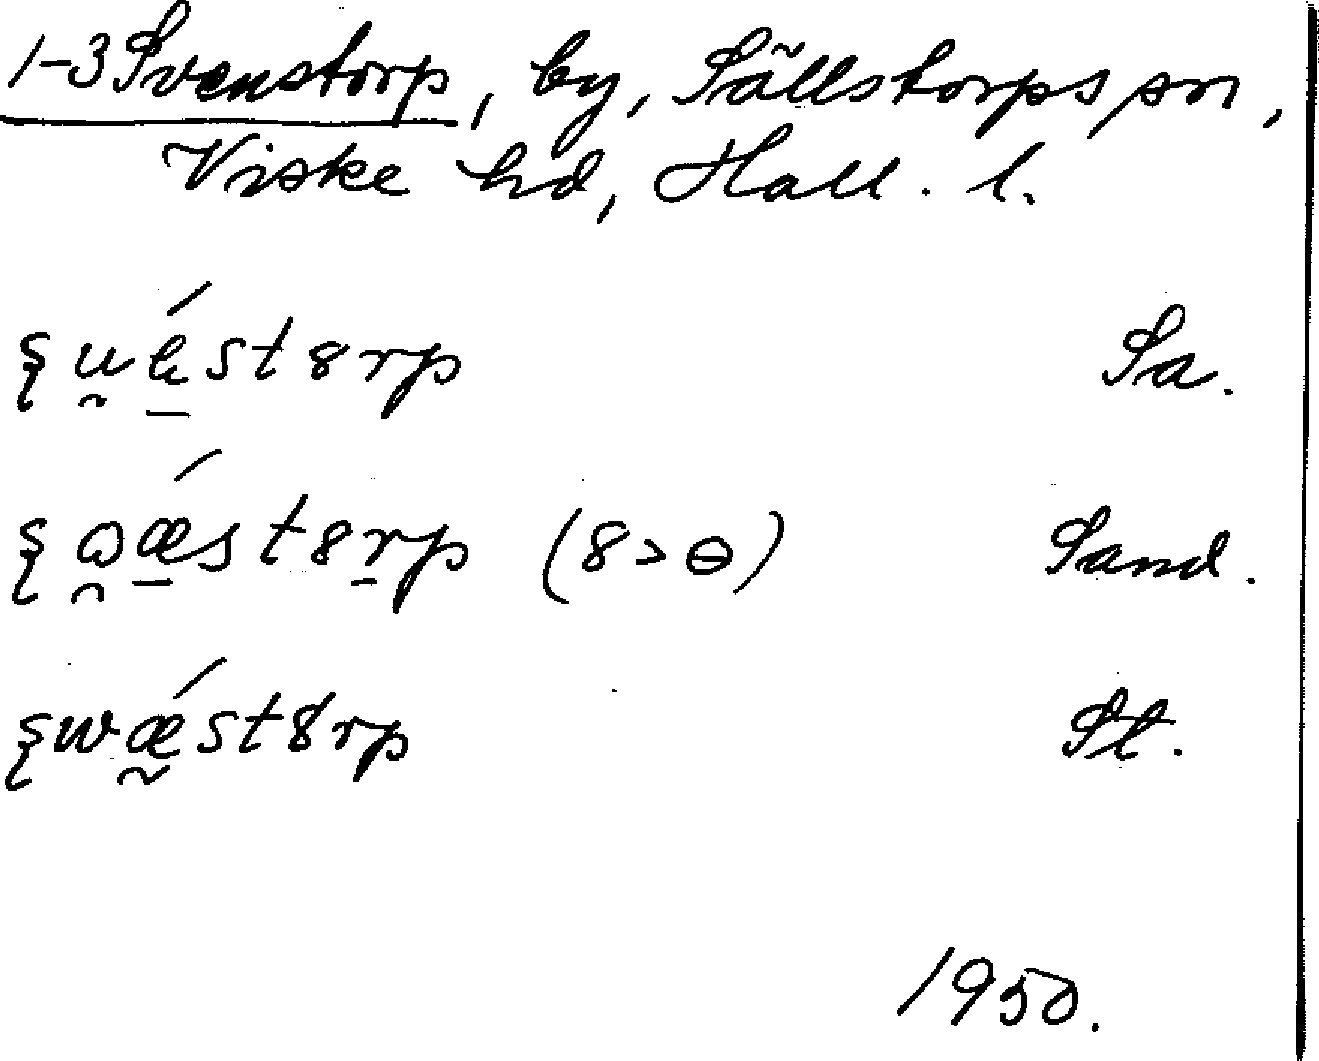 1-3 Svenstorp, by, Sällstorps sn,
Viske hd, Hall. l.
Sa.
(8>ɵ) Sand.
St.
1950.